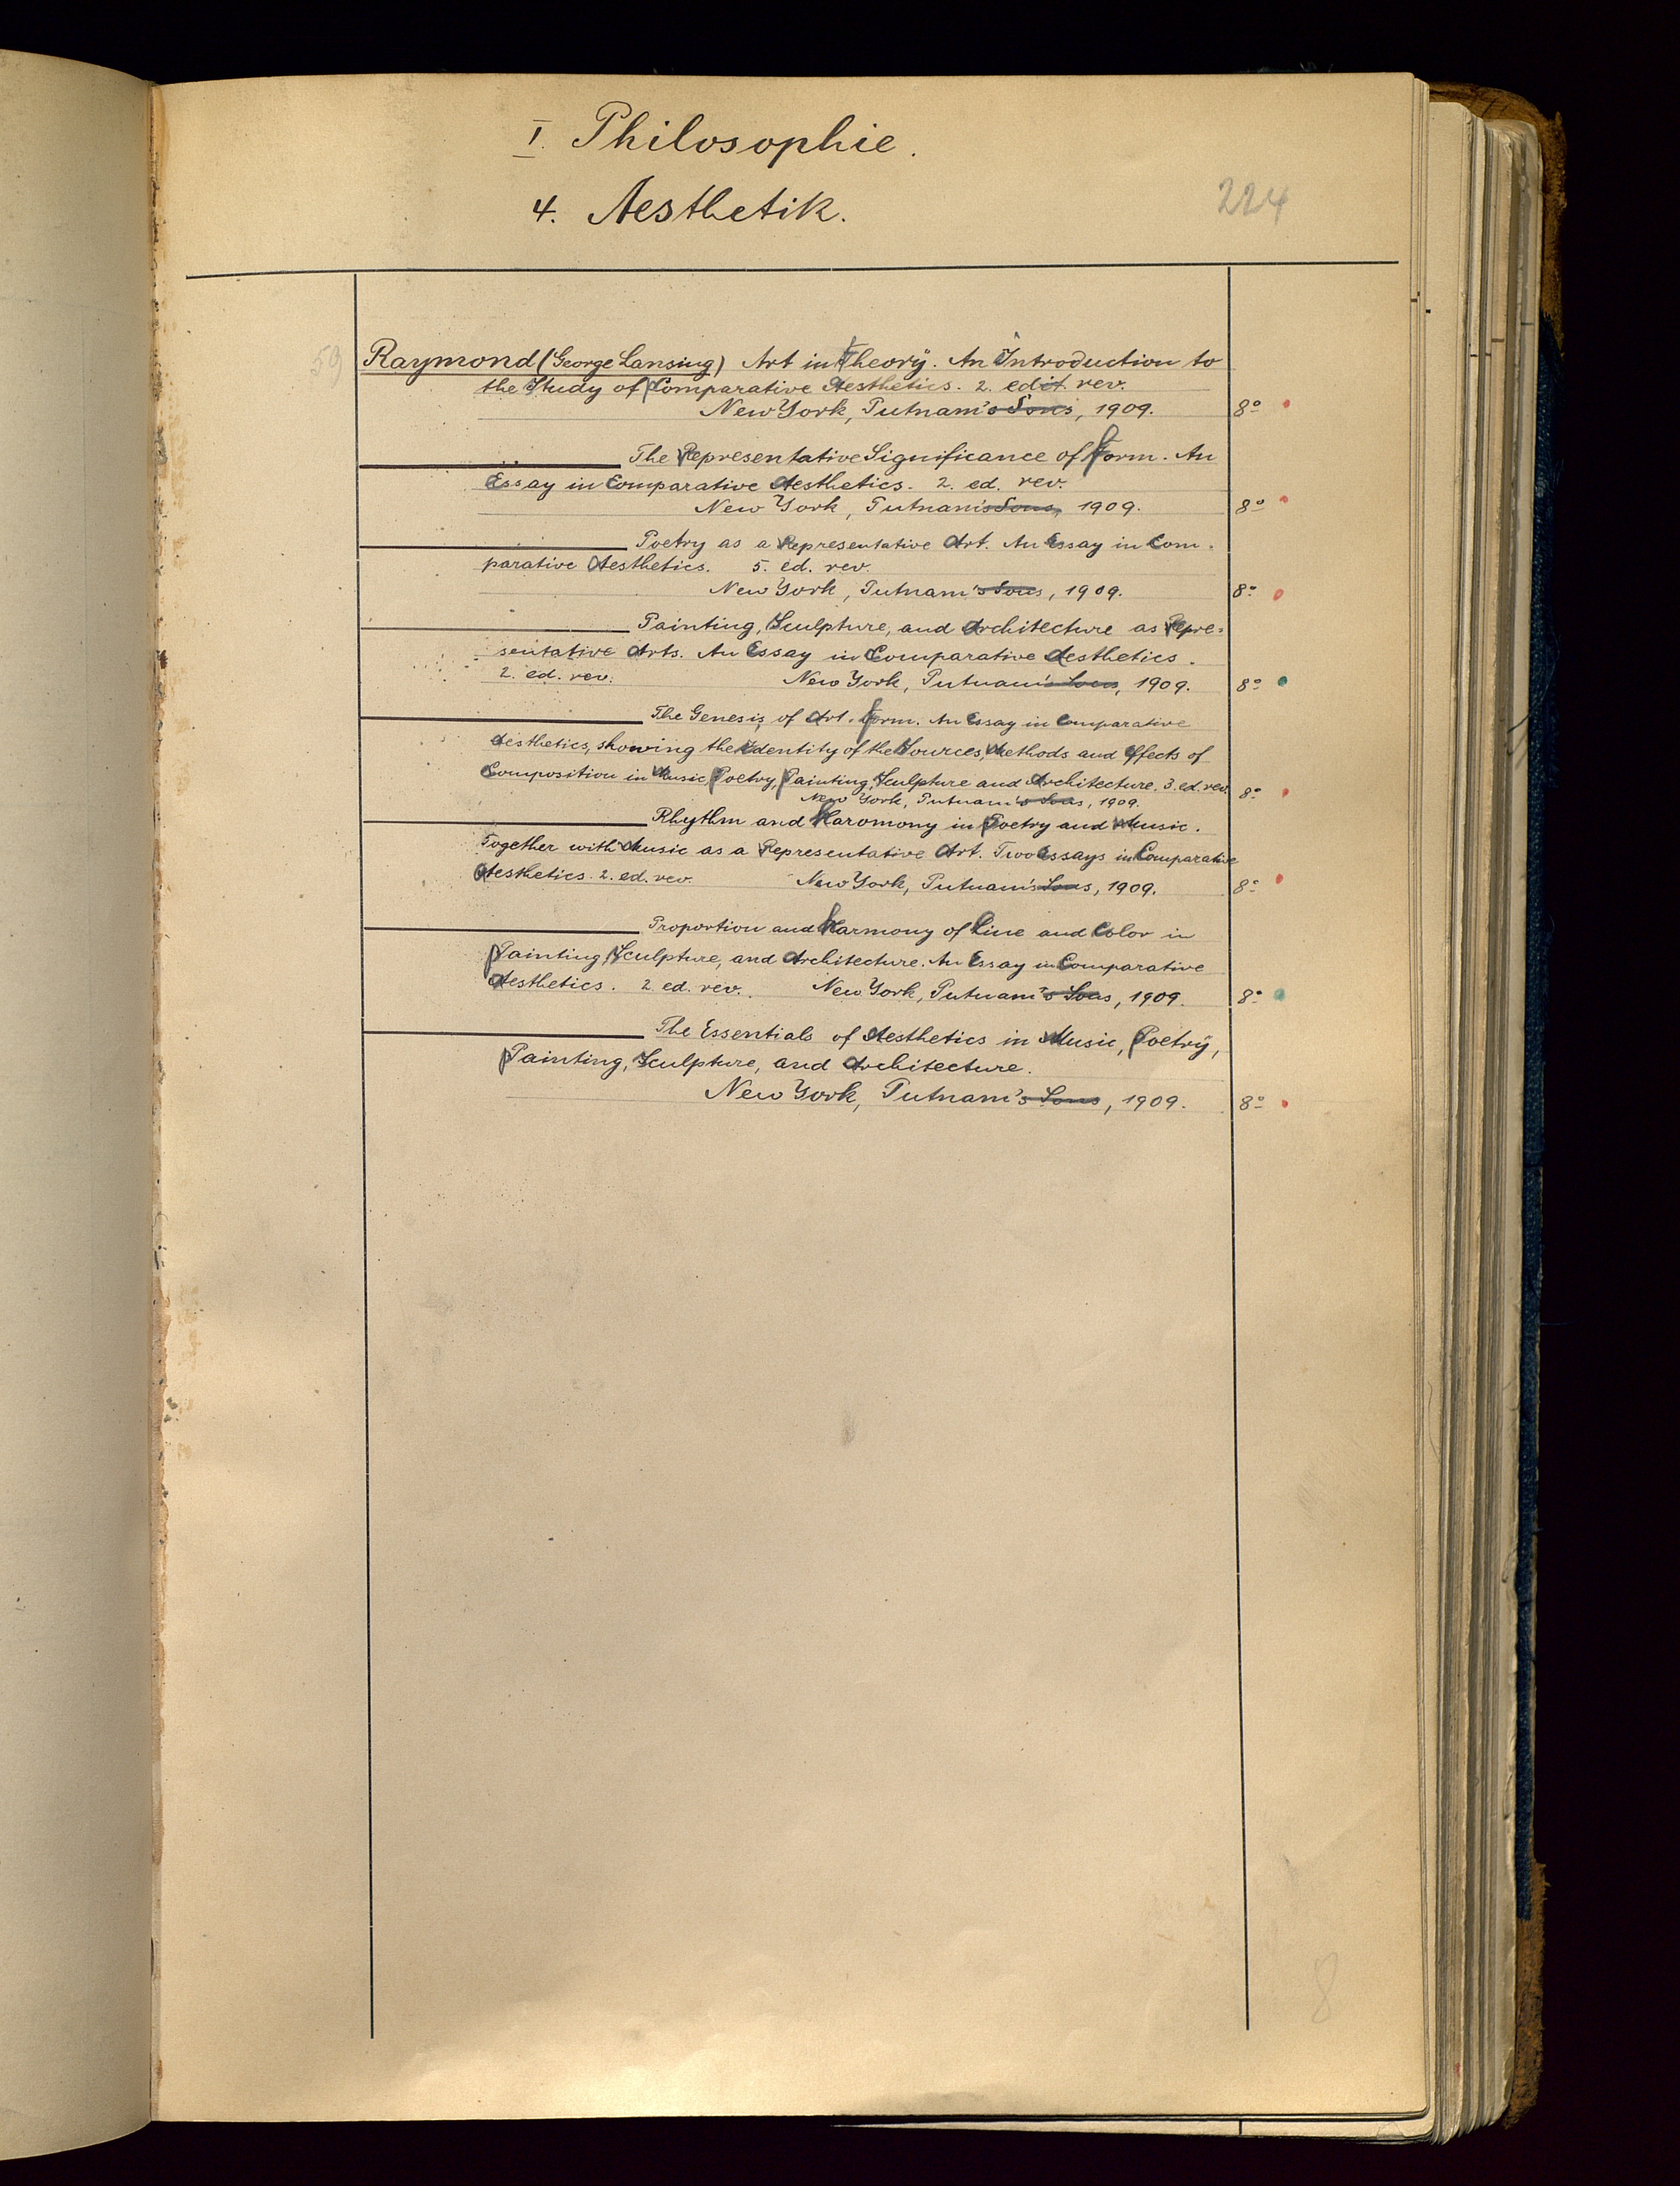 I. Philosophie.
4. Aesthetik.
224
59
Raymond (George Lansing) Art in Theory. An Introduction to
the Study of Comparative Aesthetics. 2. edit. rev.
New York, Putnam's Sons, 1909. 8°
The Representative Significance of Form. An
Essay in Comparative Aesthetics. 2. ed. rev.
New York, Putnam's Sons, 1909. 8°
Poetry as a Representative Art. An Essay in Com-
parative Aesthetics. 5. ed. rev.
New York, Putnam's Sons, 1909. 8°
Painting, Sculpture, and Architecture as Repre-
sentative Arts. An Essay in Comparative Aesthetics.
2. ed. rev. New York, Putnam's Sons, 1909. 8°
The Genesis of Art-Form. An Essay in Comparative
Aesthetics, showing the Identity of the Sources, Methods and Effects of
Composition in Music, Poetry, Painting, Sculpture and Architecture. 3. ed. rev.
New York, Putnam's Sons, 1909. 8°
Rhythm and Haromony in Poetry and Music.
Together with Music as a Representative Art. Two Essays in Comparative
Aesthetics. 2. ed. rev. New York, Putnam's Sons, 1909. 8°
Proportion and Harmony of Line and Color in
Painting, Sculpture, and Architecture. An Essay in Comparative
Aesthetics. 2. ed. rev. New York, Putnam's Sons, 1909. 8°
The Essentials of Aesthetics in Music, Poetry,
Painting, Sculpture, and Architecture.
New York, Putnam's Sons, 1909. 8°
8